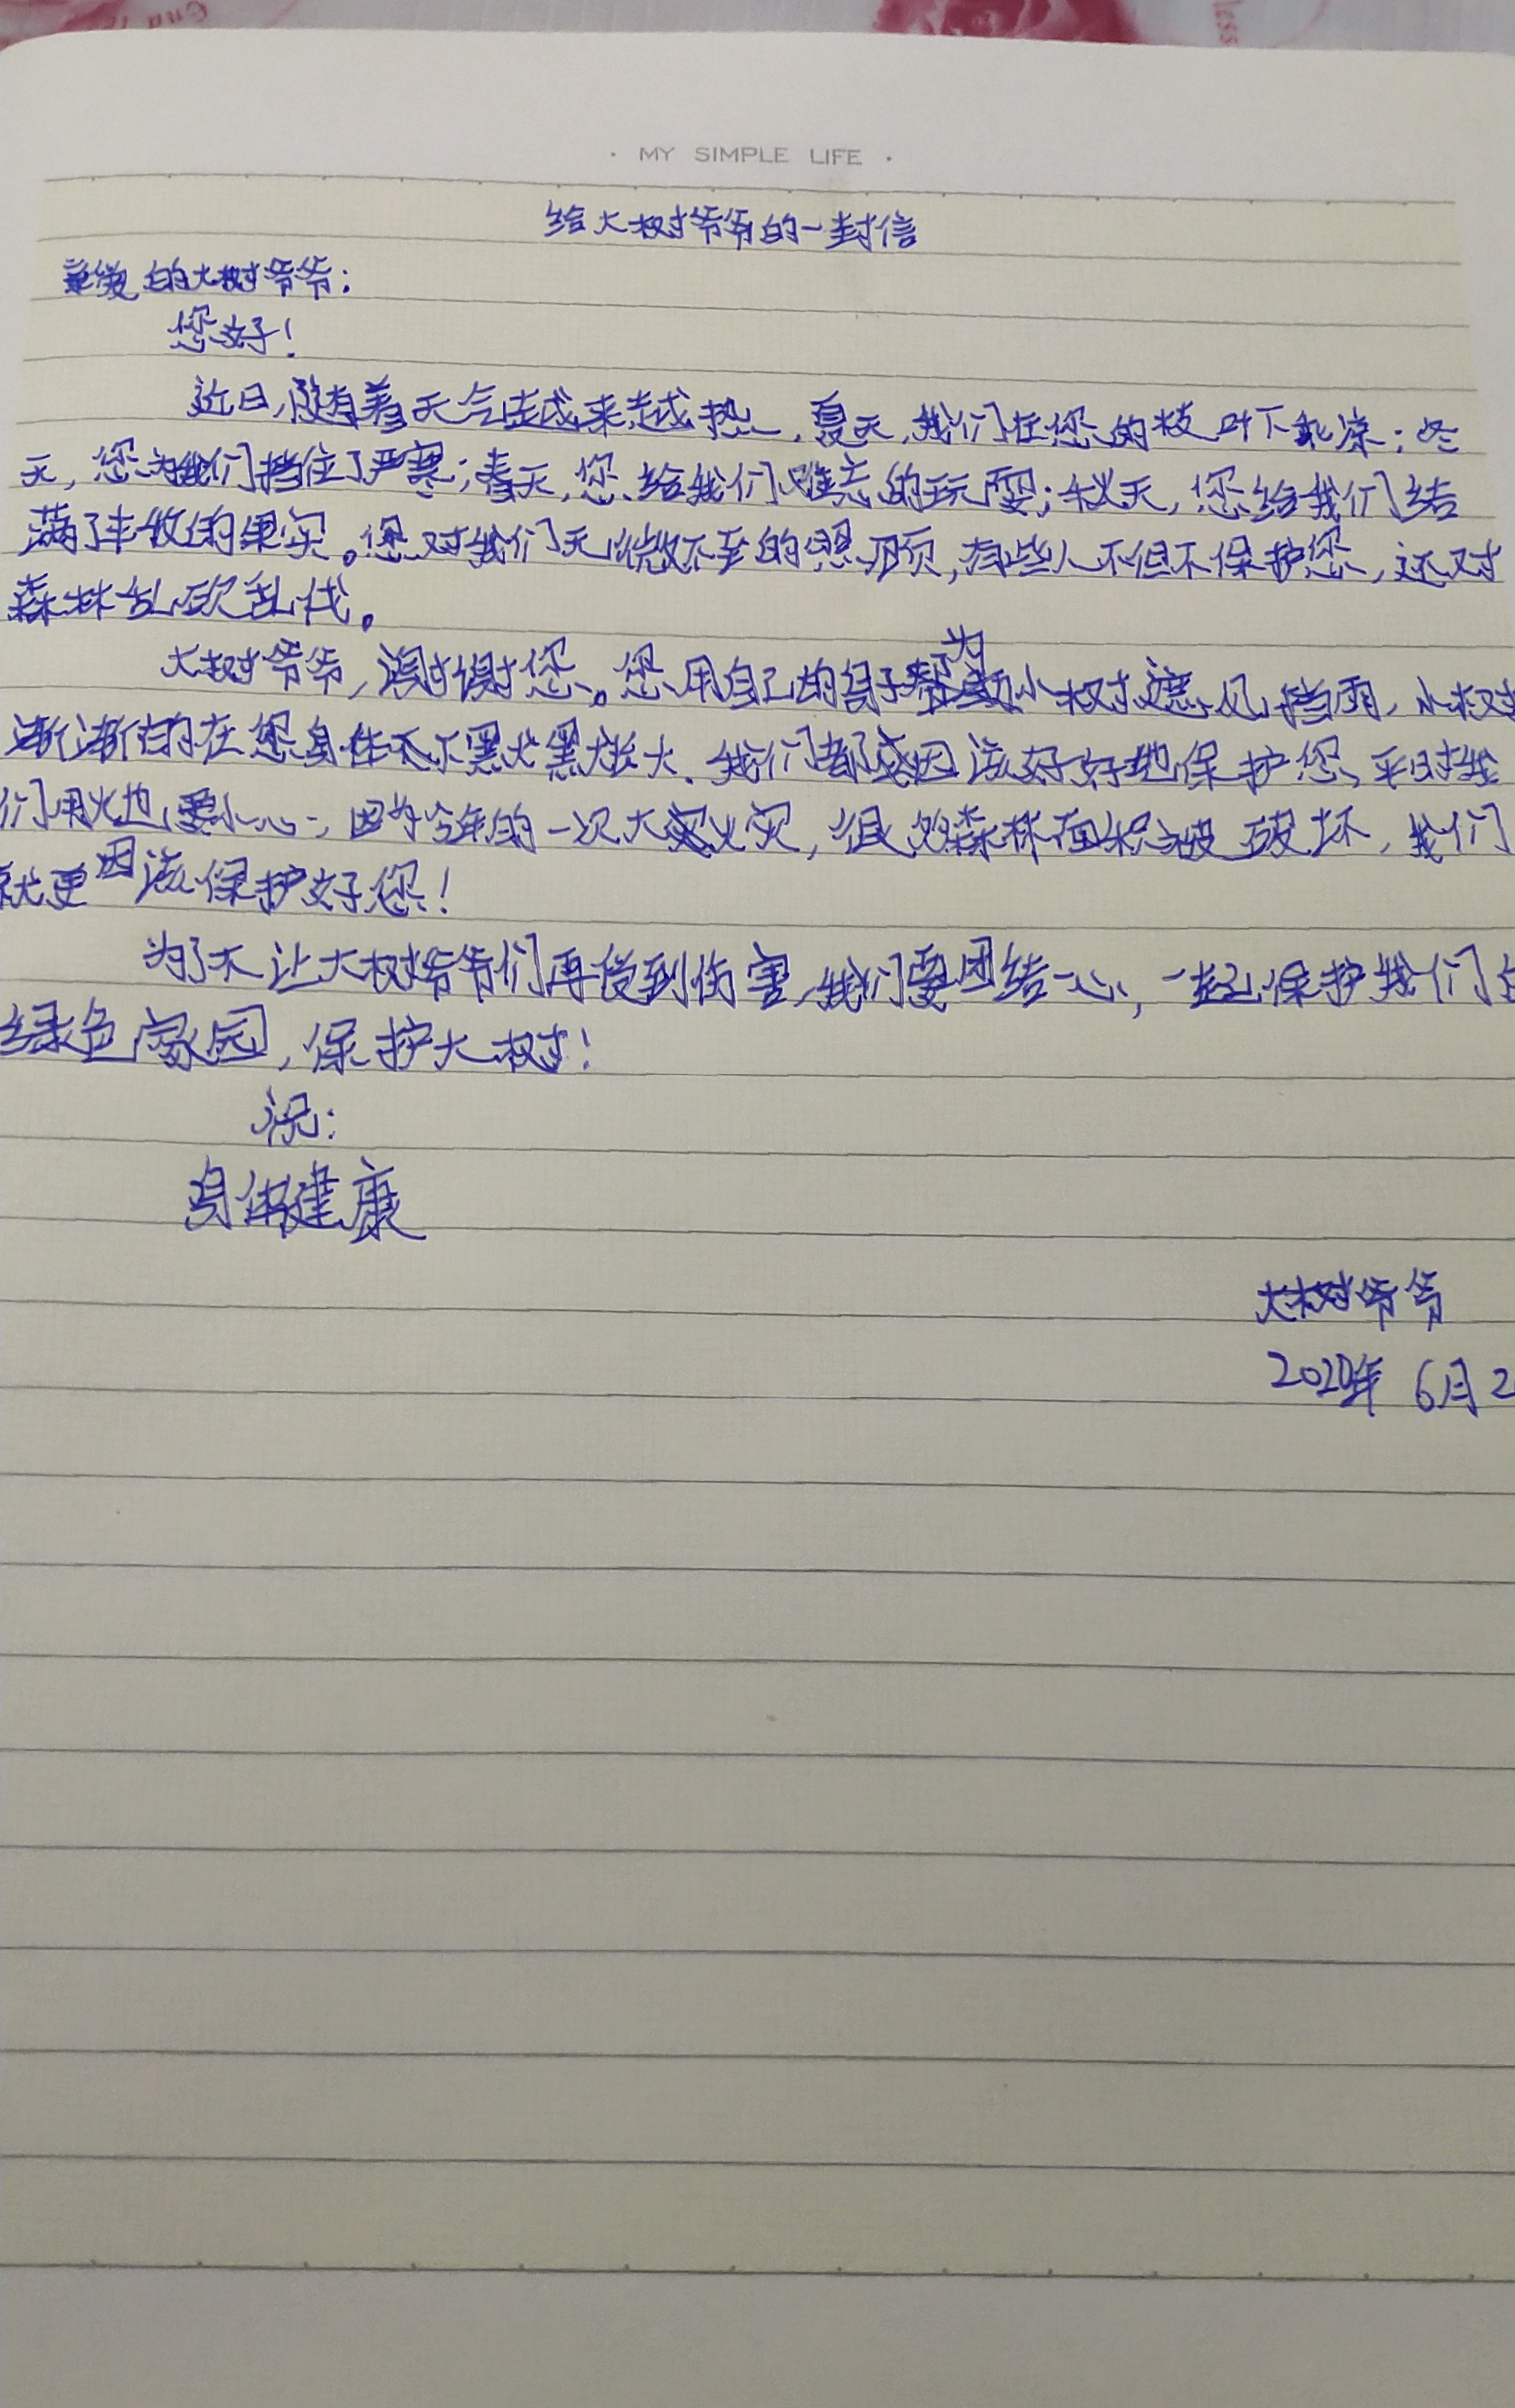 · MY SIMPLE LIFE ·
给大树爷爷的一封信
亲爱的大树爷爷：
您好！
近日，随着天气越来越热，夏天，我们在您的枝叶下乘凉；冬
天，您为我们挡住了严寒；春天，您给我们难忘的玩耍；秋天，您给我们结
满了丰收的果实。您对我们无微不至的照顾，有些人不但不保护您，还对
森林乱砍乱伐。
大树爷爷，谢谢您。您用自己的身子为小树遮风挡雨，小树
渐渐的在您身体下默默长大。我们都因该好好地保护您，平时我
们用火也要小心，因为今年的一次大火灾，很多森林面积被破坏，我们
就更因该保护好您！
为了不让大树爷爷们再受到伤害，我们要团结一心，一起保护我们
绿色家园，保护大树！
祝：
身体健康
大树爷爷
2020年 6月2